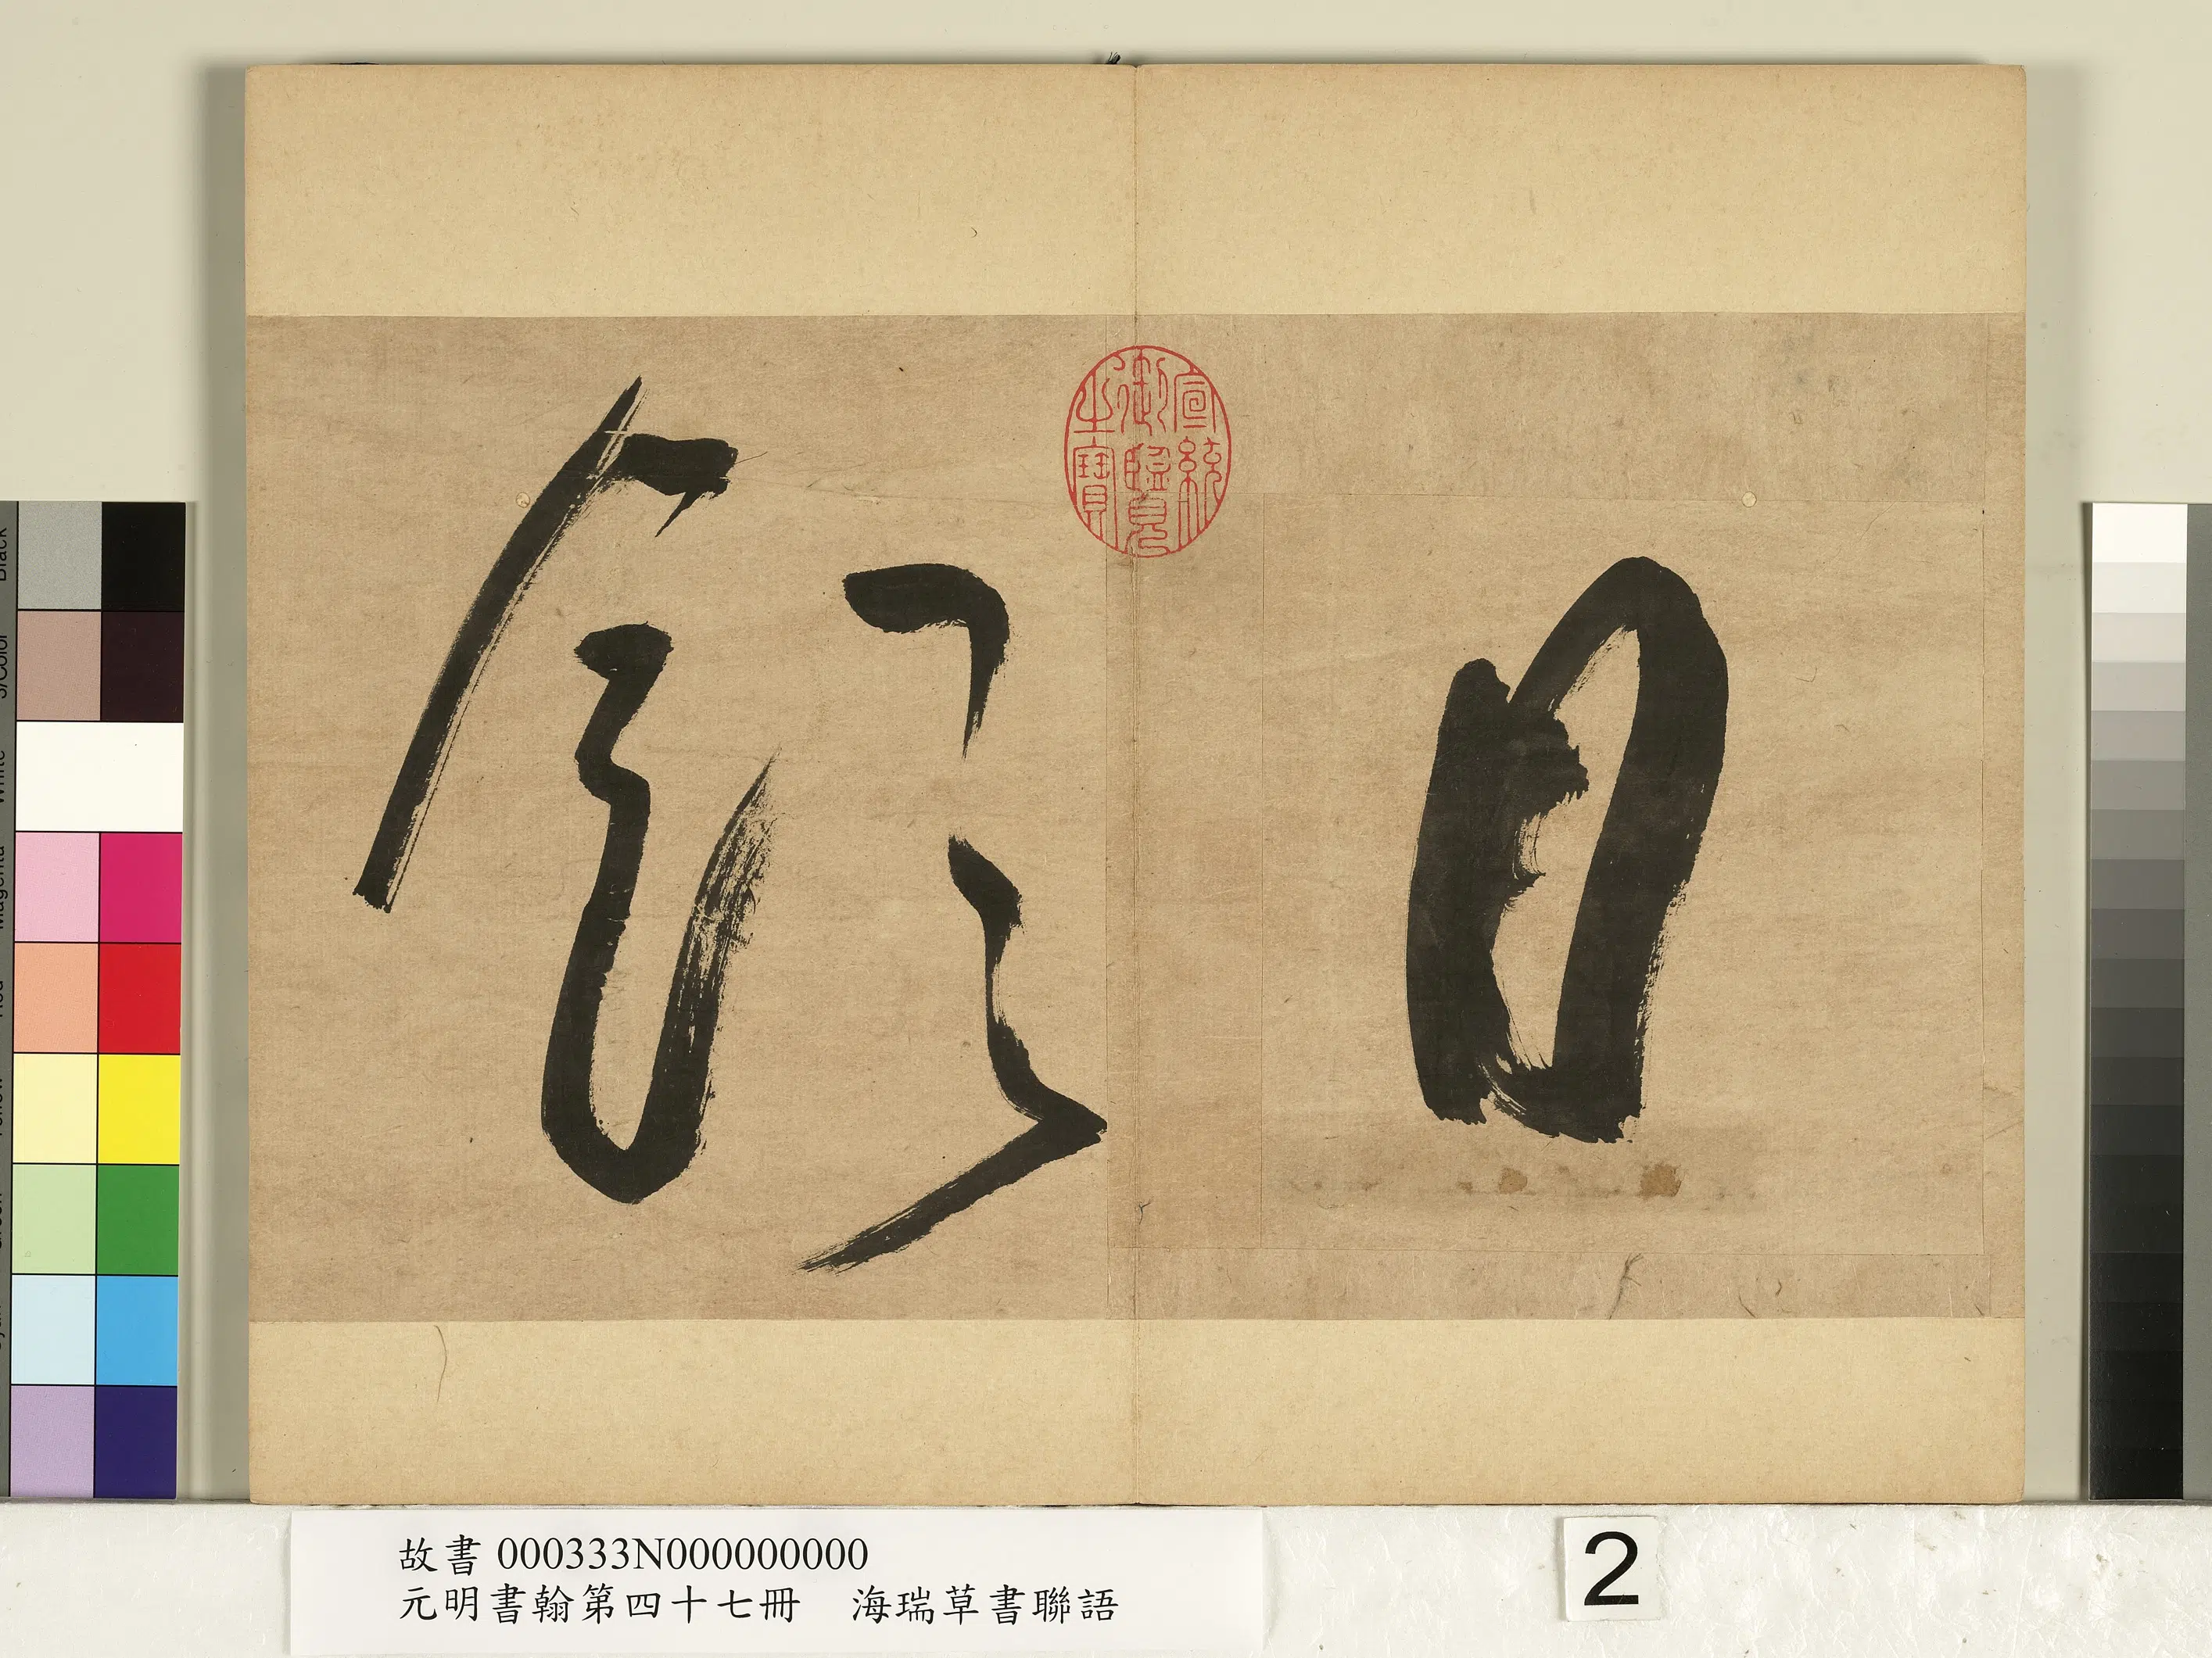 日
宣統
御覽
之寶
Black
3/Color
White
Magenta
故書 000333N000000000
元明書翰第四十七冊 海瑞草書聯語
2